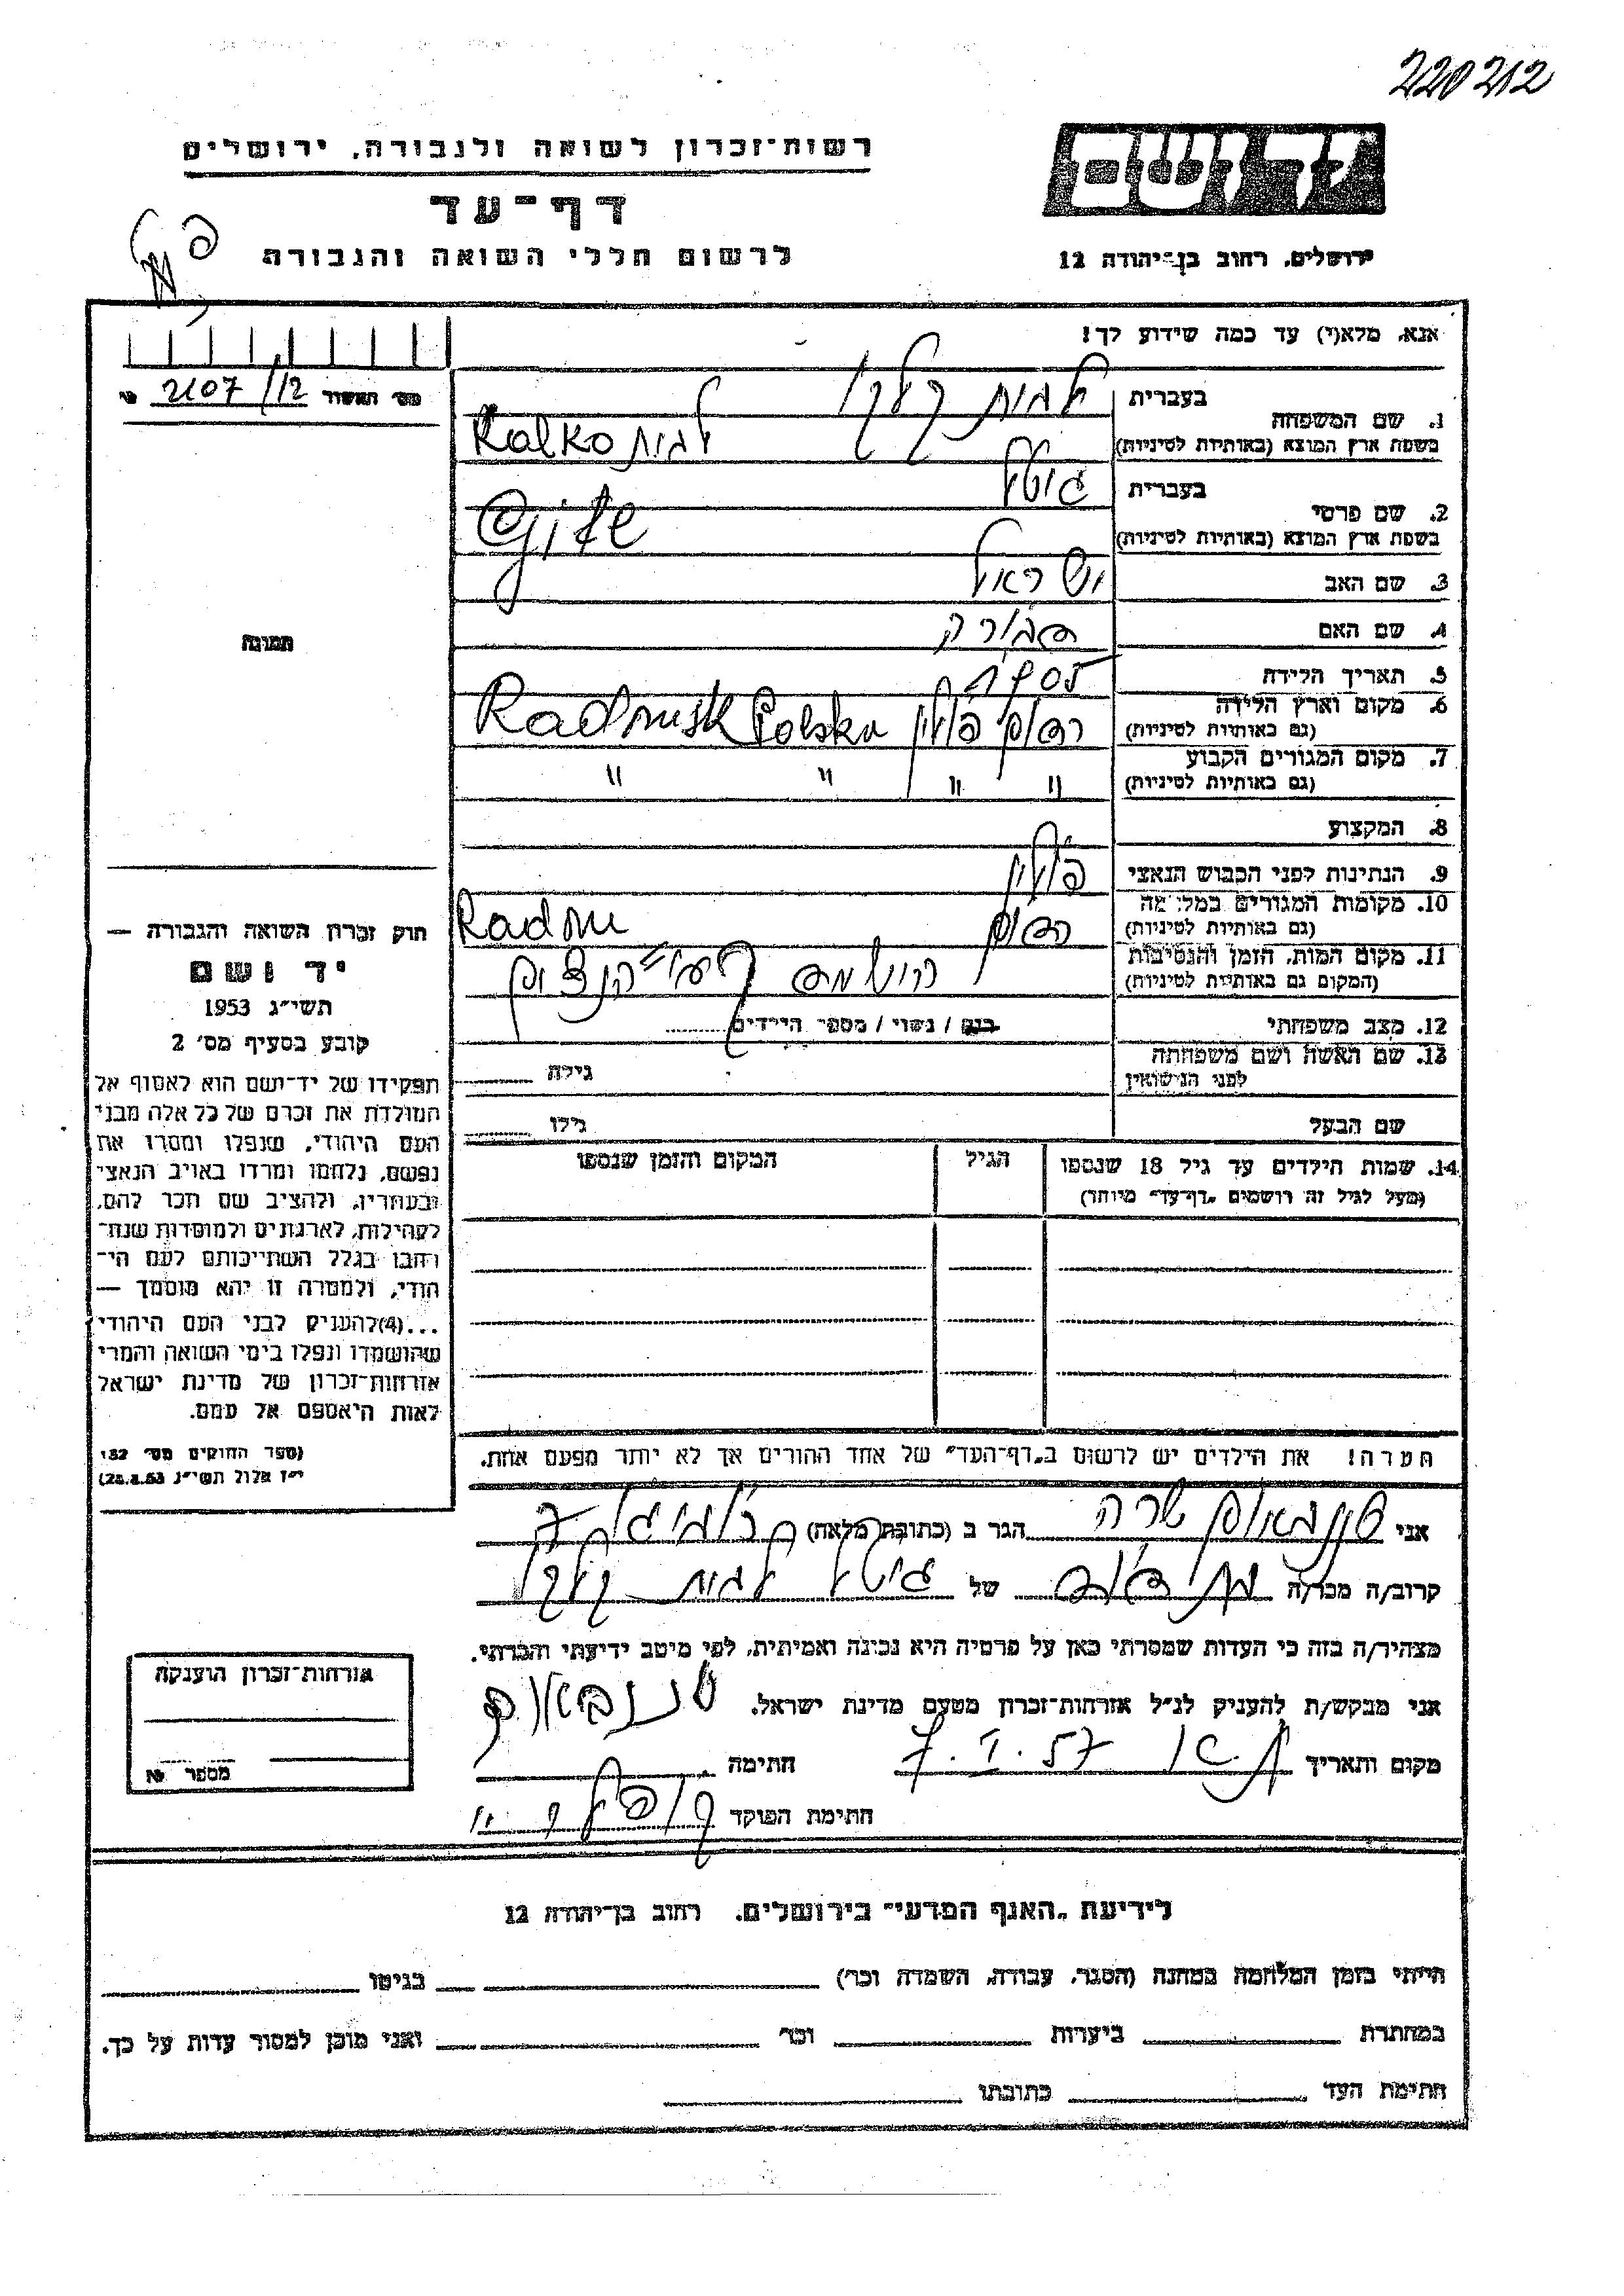 220212
רשות-זכרון לשואה ולגבורה, ירושלים
דף-עד
לרשום חללי השואה והגבורה
יד ושם
ירושלים, רחוב בן-יהודה 12
אנא, מלא(י) עד כמה שידוע לך!
מס' תאשור 2107/12
1. שם המשפחה
בעברית
בשפת ארץ המוצא (באותיות לטיניות) Kalko
2. שם פרטי
בעברית גיטל
בשפת ארץ המוצא (באותיות לטיניות) Gitl
3. שם האב ישראל
4. שם האם
5. תאריך הלידה 1905
6. מקום וארץ הלידה
(גם באותיות לטיניות) רדומסק פולין Radmsk Polska
7. מקום המגורים הקבוע
(גם באותיות לטיניות) " " " "
8. המקצוע
9. הנתינות לפני הכבוש הנאצי פולין
10. מקומות המגורים במלחמה
(גם באותיות לטיניות) Radom
11. מקום המות, הזמן והנסיבות
(המקום גם באותיות לטיניות)
12. מצב משפחתי רווק / נשוי / מספר הילדים
13. שם האשה ושם משפחתה
לפני הנישואין גילה
שם הבעל גילו
14. שמות הילדים עד גיל 18 שנספו
(מעל לגיל זה רושמים "דף-עד" מיוחד)
הגיל
המקום והזמן שנספו
הערה! את הילדים יש לרשום ב"דף-העד" של אחד ההורים אך לא יותר מפעם אחת.
תמונה
חוק זכרון השואה והגבורה —
יד ושם
תשי"ג 1953
קובע בסעיף מס' 2
תפקידו של יד-ושם הוא לאסוף אל
המולדת את זכרם של כל אלה מבני
העם היהודי, שנפלו ומסרו את
נפשם, נלחמו ומרדו באויב הנאצי
ובעוזריו, ולהציב שם וזכר להם,
לקהילות, לארגונים ולמוסדות שנח-
רבו בגלל השתייכותם לעם הי-
הודי, ולמטרה זו יהא מוסמך —
...(4)להעניק לבני העם היהודי
שהושמדו ונפלו בימי השואה והמרי
אזרחות-זכרון של מדינת ישראל
לאות היאספם אל עמם.
(ספר החוקים מס' 132
י"ז אלול תשי"ג 28.8.53)
אני שרה הגר ב (כתובת מלאה)
קרוב/ה מכר/ה של גיטל
מצהיר/ה בזה כי העדות שמסרתי כאן על פרטיה היא נכונה ואמיתית, לפי מיטב ידיעתי והכרתי.
אני מבקש/ת להעניק לנ"ל אזרחות-זכרון מטעם מדינת ישראל.
מקום ותאריך 7.I.57 חתימה
חתימת הפוקד
אזרחות-זכרון הוענקה
מספר №
לידיעת "האגף המדעי" בירושלים, רחוב בן-יהודה 12
הייתי בזמן המלחמה במחנה (הסגר, עבודה, השמדה וכו') בגיטו
במחתרת ביערות וכו' ואני מוכן למסור עדות על כך.
חתימת העד כתובתו